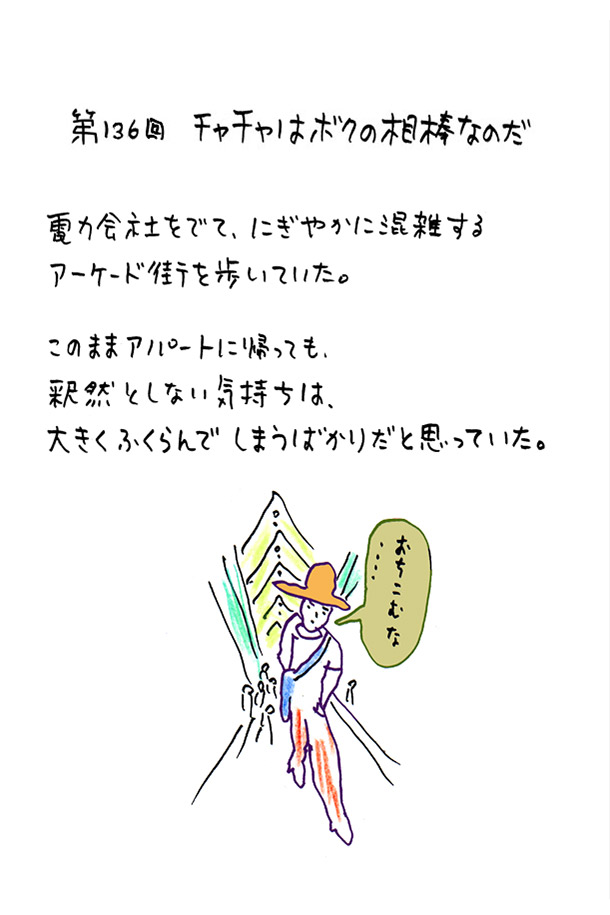 第136回 チャチャはボクの相棒なのだ
電力会社をでて、にぎやかに混雑する
アーケード街を歩いていた。
このままアパートに帰っても、
釈然としない気持ちは、
大きくふくらんでしまうばかりだと思っていた。
おちこむな
・・・・